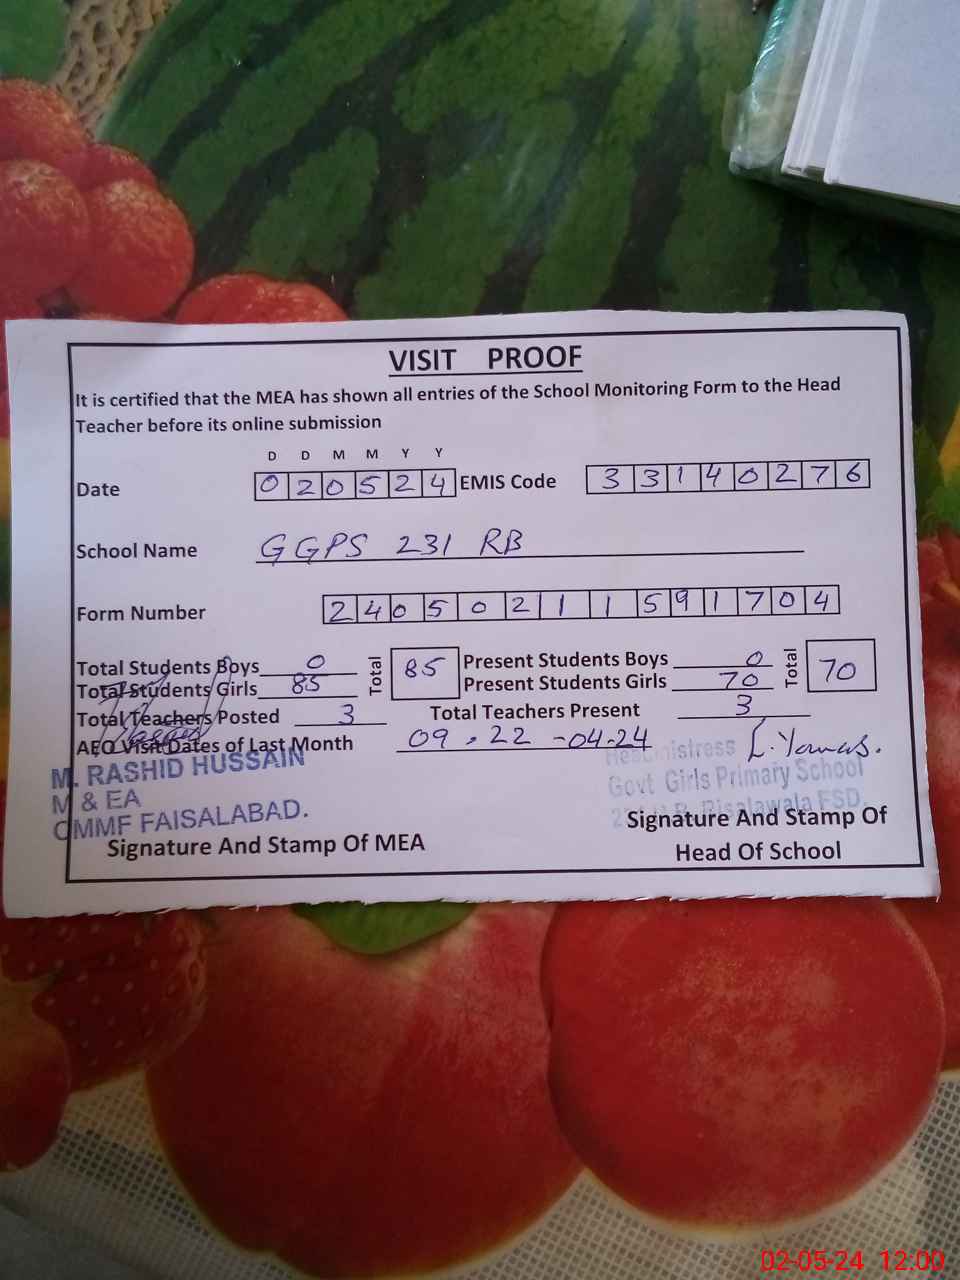 VISIT PROOF
It is certified that the MEA has shown all entries of the School Monitoring Form to the Head
Teacher before its online submission
D D M M Y Y
Date 020524 EMIS Code 33140276
School Name GGPS 231 RB
Form Number 24050211591704
Total Students Boys 0 Total 85 Present Students Boys 0 Total 70
Total Students Girls 85 Present Students Girls 70
Total Teachers Posted 3 Total Teachers Present 3
AEO Visit Dates of Last Month 09, 22 -04-24
M. RASHID HUSSAIN
M & EA
CMMF FAISALABAD.
Signature And Stamp Of MEA
Headmistress
Govt Girls Primary School
Risalawala FSD.
Signature And Stamp Of
Head Of School
02-05-24 12:00